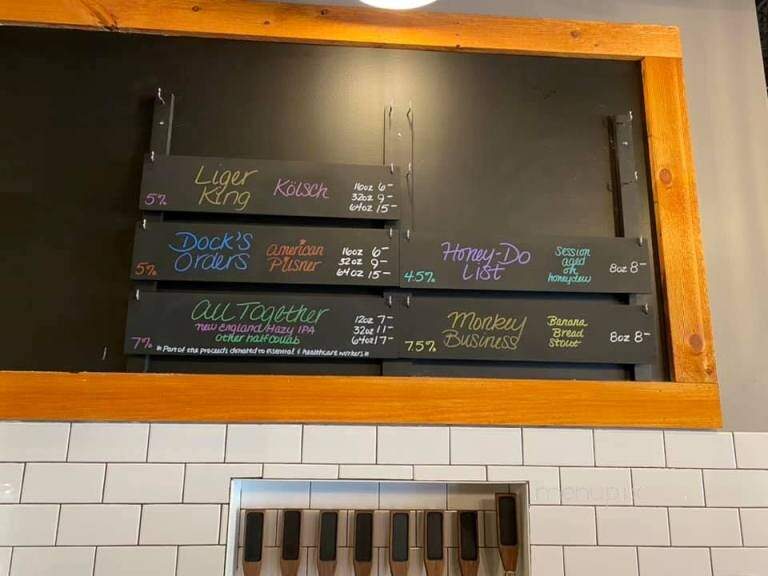 5%
Liger
King
Kölsch
16oz 6-
32oz 9-
64oz 15-
5%
Dock's
Orders
American
Pilsner
16oz 6-
32oz 9-
64oz 15-
7%
All Together
new england/Hazy IPA
other half collab
* Part of the proceeds donated to essential & healthcare workers *
12oz 7-
32oz 11-
64oz 17-
4.5%
Honey-Do
List
Session
aged
on
honeydew
8oz 8-
7.5%
Monkey
Business
Banana
Bread
Stout
8oz 8-
menupix